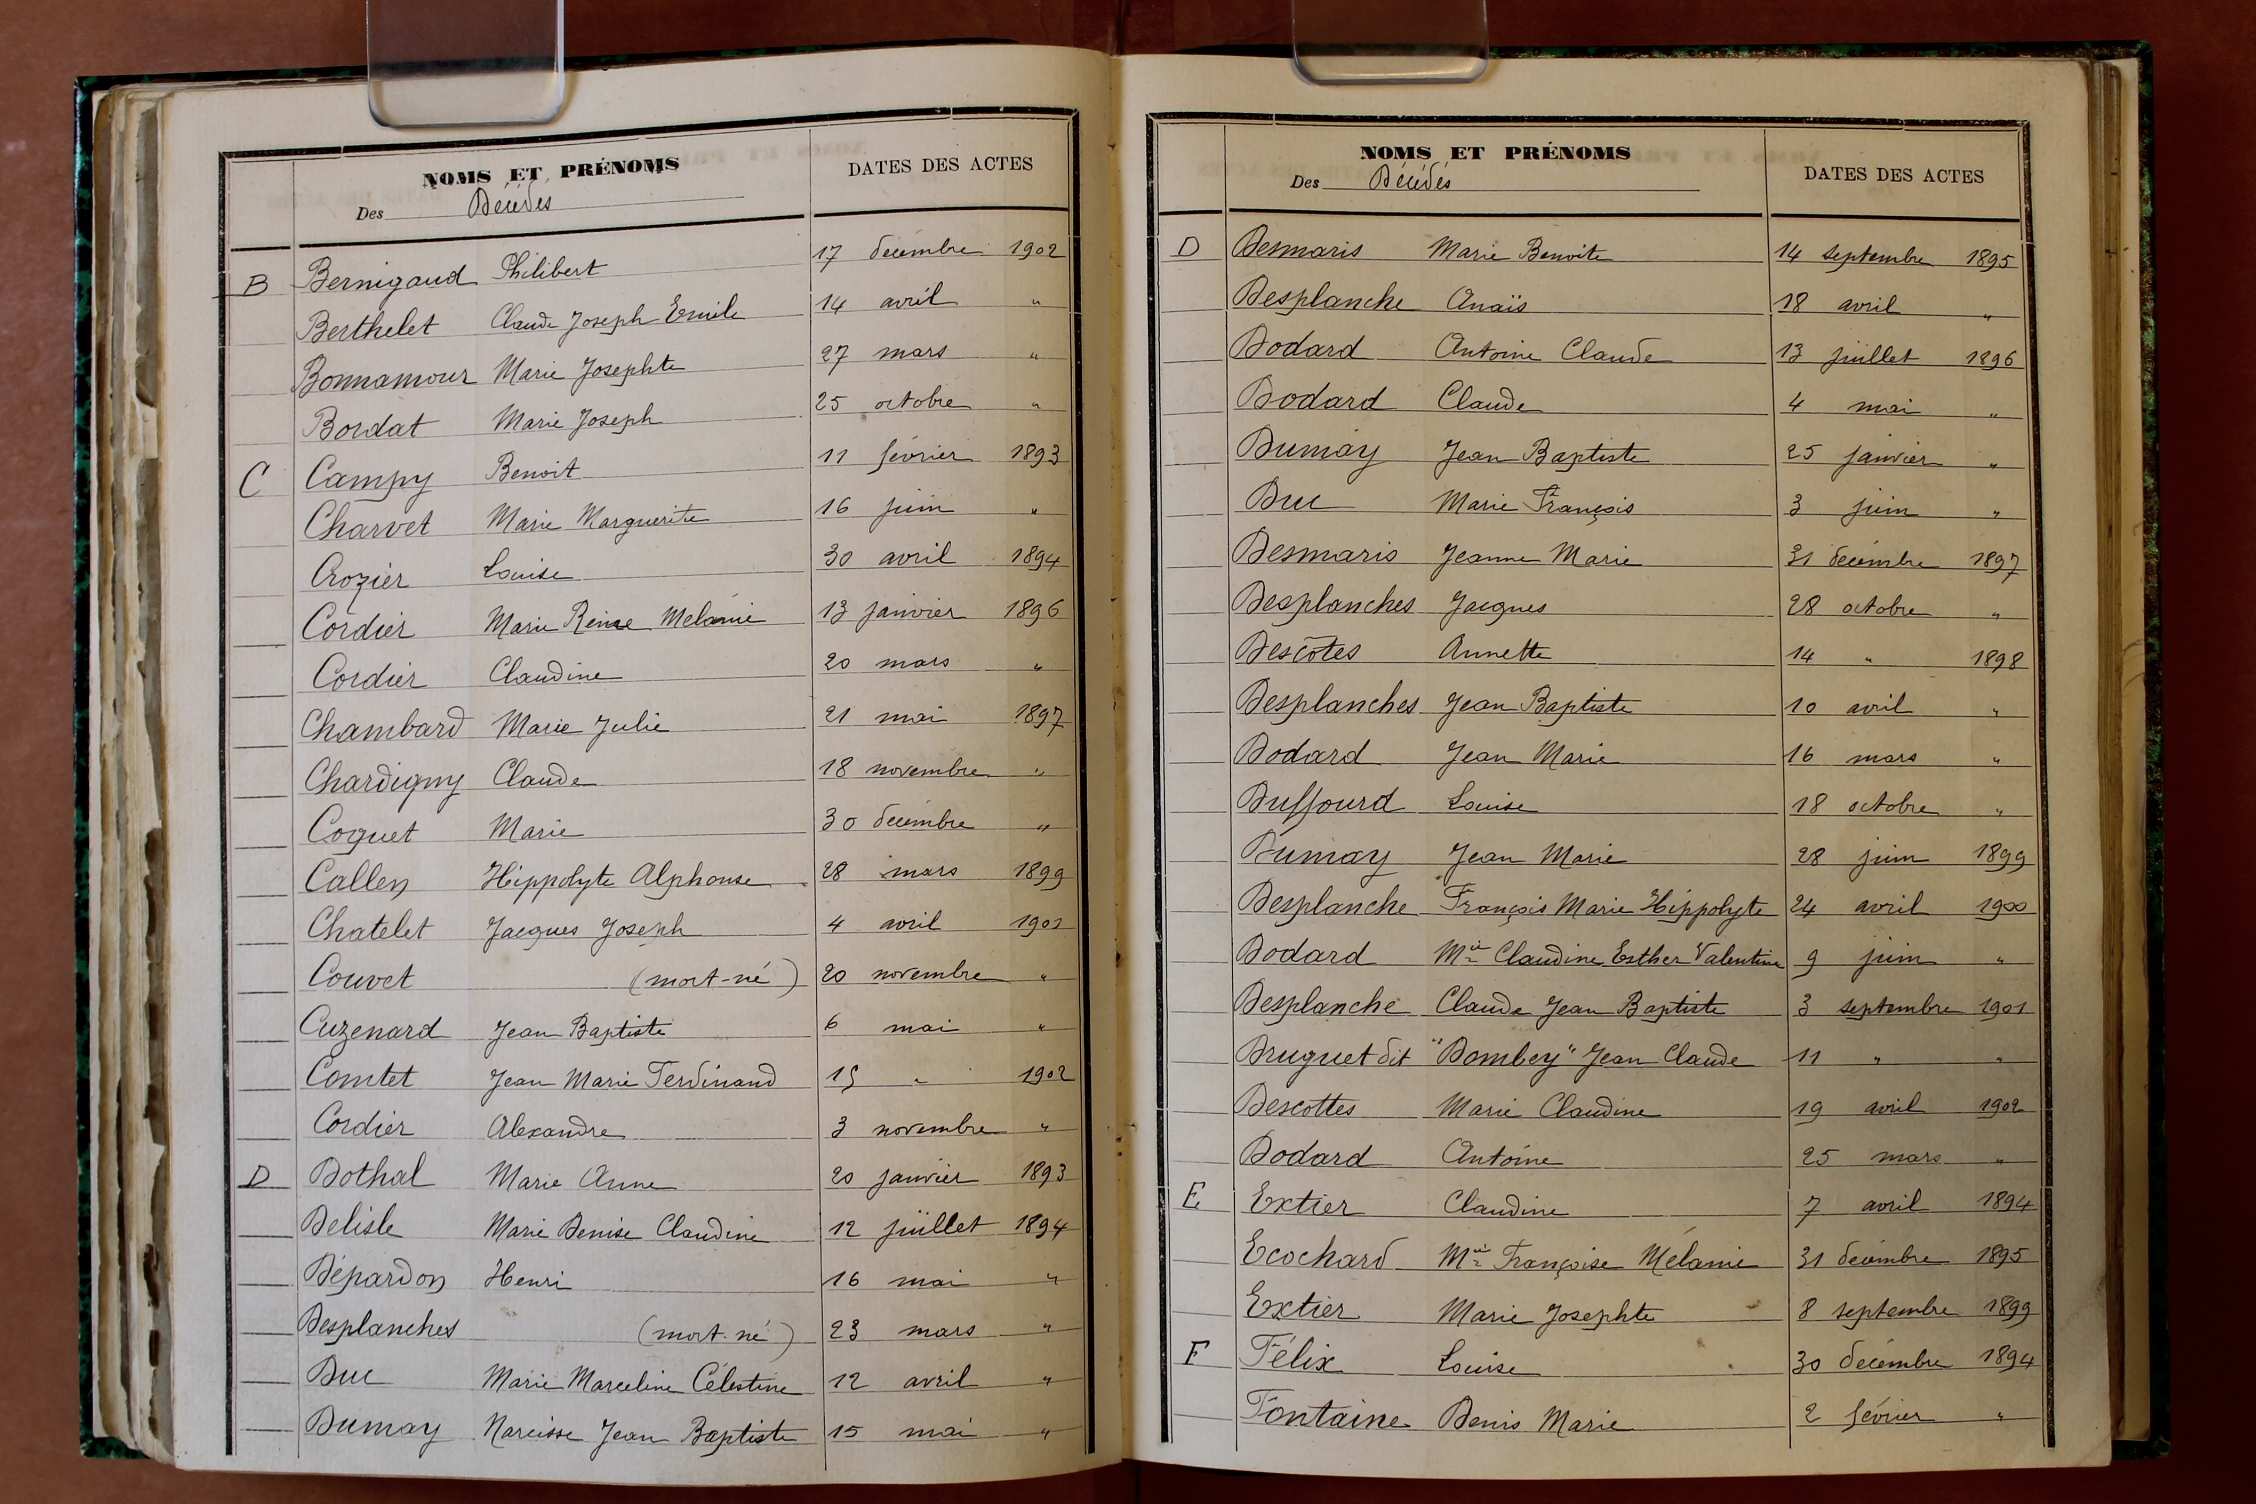 NOMS ET PRÉNOMS DATES DES ACTES
Des Décédés
B Bernigaud Philibert 17 décembre 1902
Berthelet Claude Joseph Emile 14 avril "
Bonnamour Marie Josephte 27 mars "
Bordat Marie Joseph 25 octobre "
C Campy Benoit 11 février 1893
Charvet Marie Marguerite 16 juin "
Crozier Louise 30 avril 1894
Cordier Marie Reine Melanie 13 janvier 1896
Cordier Claudine 20 mars "
Chambard Marie Julie 21 mai 1897
Chardigny Claude 18 novembre "
Coquet Marie 30 décembre "
Callen Hippolyte Alphonse 28 mars 1899
Chatelet Jacques Joseph 4 avril 1901
Couvet (mort-né) 20 novembre "
Cuzenard Jean Baptiste 6 mai "
Comtet Jean Marie Ferdinand 15 " 1902
Cordier Alexandre 3 novembre "
D Dothal Marie Anne 20 janvier 1893
Delisle Marie Denise Claudine 12 juillet 1894
Dépardon Henri 16 mai "
Desplanches (mort-né) 23 mars "
Duc Marie Marceline Célestine 12 avril "
Dumay Narcisse Jean Baptiste 15 mai "
NOMS ET PRÉNOMS DATES DES ACTES
Des Décédés
D Desmaris Marie Benoite 14 septembre 1895
Desplanche Anaïs 18 avril "
Dodard Antoine Claude 13 juillet 1896
Dodard Claude 4 mai "
Dumay Jean Baptiste 25 janvier "
Duc Marie François 3 juin "
Desmaris Jeanne Marie 31 décembre 1897
Desplanches Jacques 28 octobre "
Descôtes Annette 14 " 1898
Desplanches Jean Baptiste 10 avril "
Dodard Jean Marie 16 mars "
Duffourd Louise 18 octobre "
Dumay Jean Marie 28 juin 1899
Desplanche François Marie Hippolyte 24 avril 1900
Dodard Mie Claudine Esther Valentine 9 juin "
Desplanche Claude Jean Baptiste 3 septembre 1901
Druguet dit "Dombey" Jean Claude 11 " "
Descottes Marie Claudine 19 avril 1902
Dodard Antoine 25 mars "
E Extier Claudine 7 avril 1894
Ecochard Mie Françoise Mélanie 31 décembre 1895
Extier Marie Josephte 8 septembre 1899
F Félix Louise 30 décembre 1894
Fontaine Denis Marie 2 février "